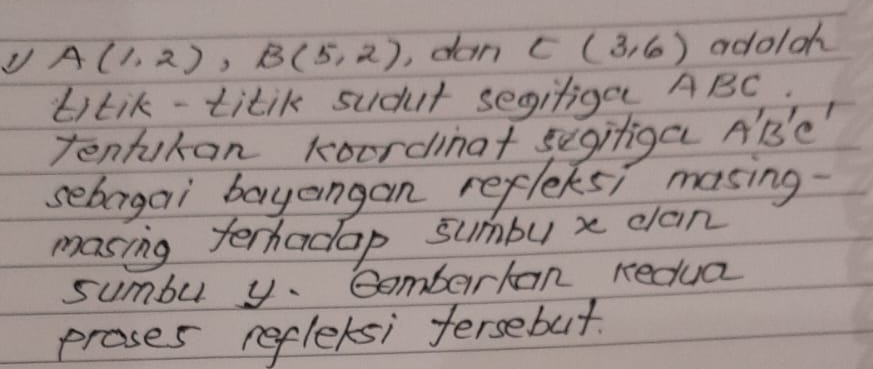 1) A(1, 2), B(5, 2), dan C (3, 6) adalah
titik - titik sudut segitiga ABC.
Tentukan koordinat segitiga A'B'C'
sebagai bayangan refleksi masing-
masing terhadap sumbu x dan
sumbu y. Gambarkan kedua
proses refleksi tersebut.